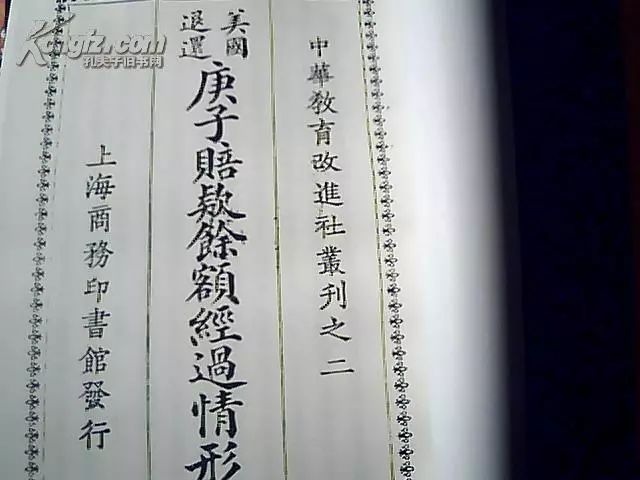 中華教育改進社叢刊之二
美國
退還
庚子賠款餘額經過情形
上海商務印書館發行
Kongfz.com
孔夫子旧书网